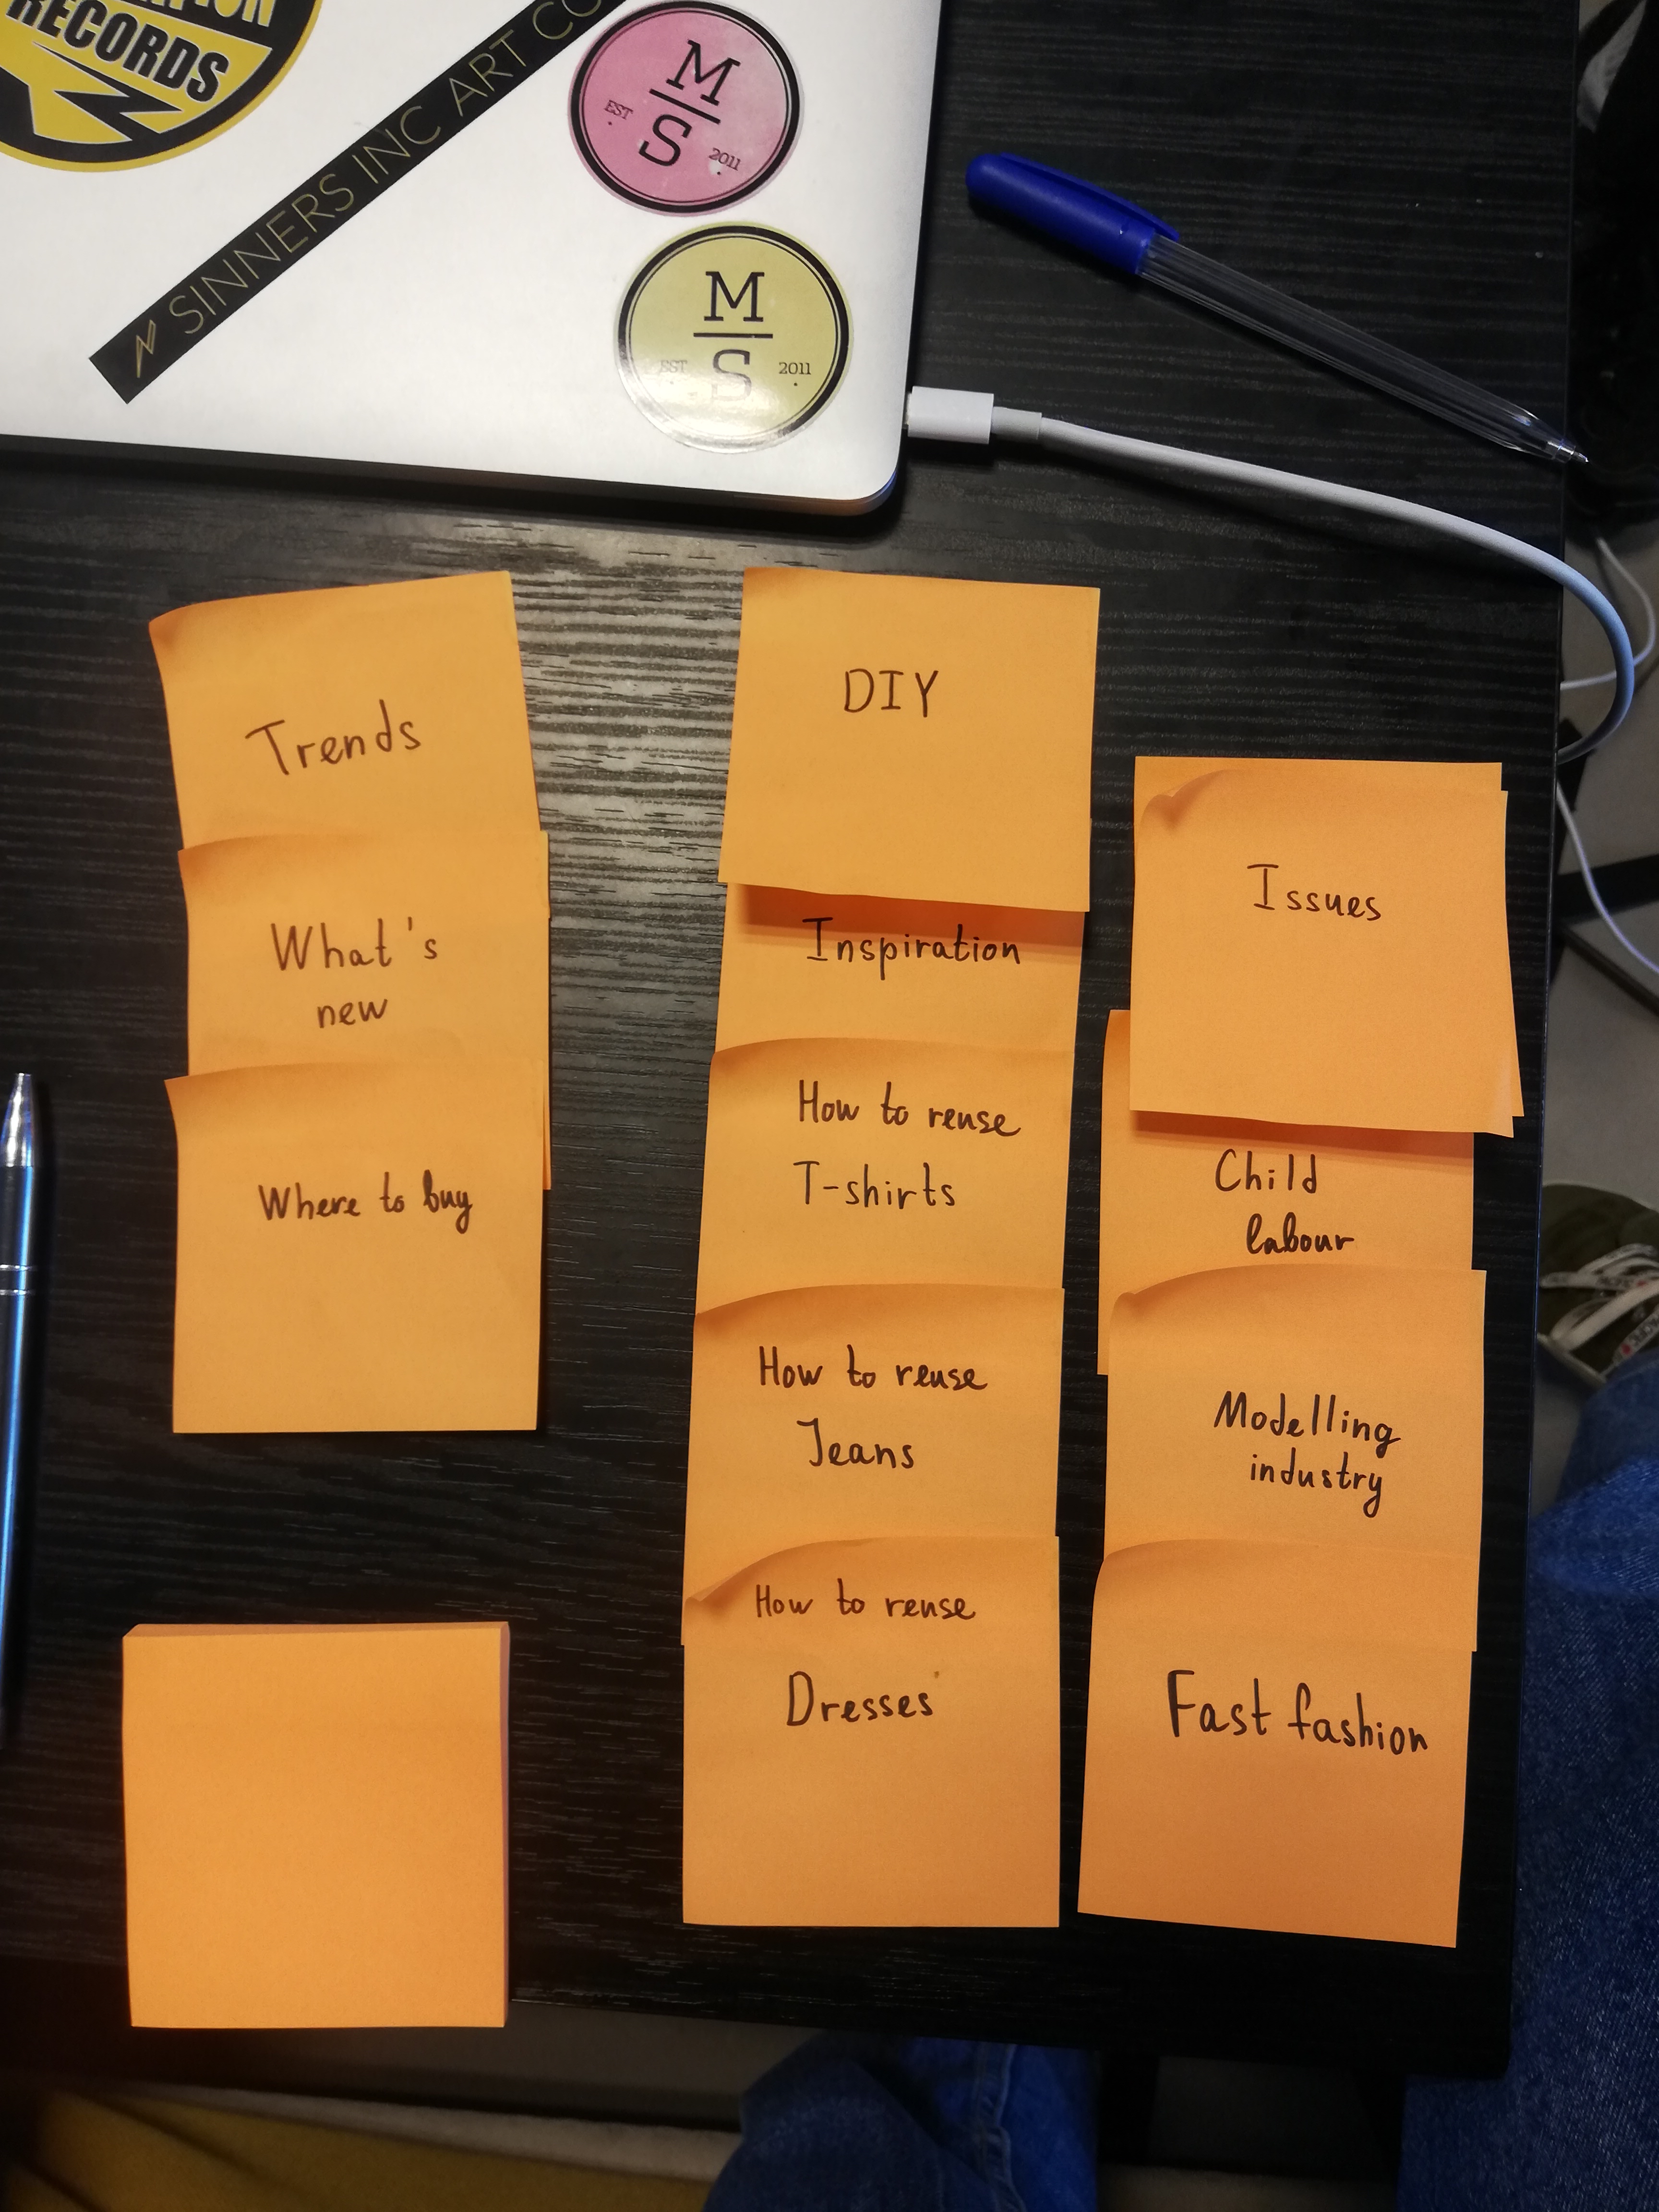 RECORDS
SINNERS INC ART CO
M
S
EST
2011
M
S
EST
2011
Trends
What's
new
Where to buy
DIY
Inspiration
How to reuse
T-shirts
How to reuse
Jeans
How to reuse
Dresses
Issues
Child
labour
Modelling
industry
Fast fashion